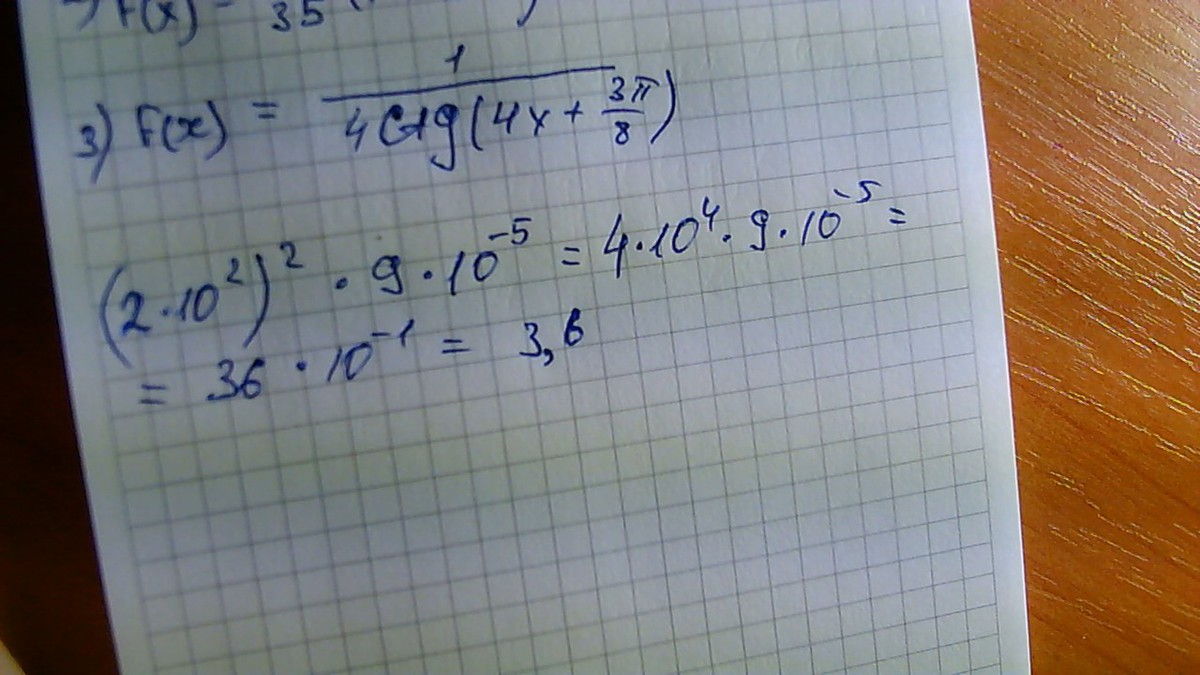 F(x) = 35 (
3) F(x) = 1 / 4 Ctg(4x + 3π/8)
(2·10²)² · 9·10⁻⁵ = 4·10⁴·9·10⁻⁵ =
= 36·10⁻¹ = 3,6